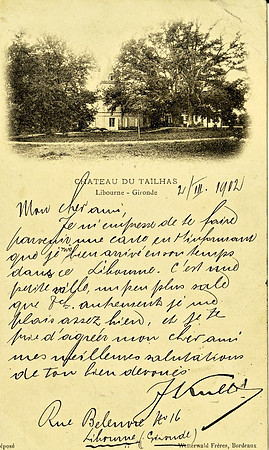 CHATEAU DU TAILHAS
Libourne - Gironde
2/III. 1902
Mon cher ami,
Je m'empresse de te faire
parvenir une carte en t'informant
que je suis bien arrivé en son temps
dans ce Libourne. C'est une
petite ville, un peu plus sale
que autrement je me
plais assez bien, et je te
prie d'agréer mon cher ami
mes meilleures salutations
de ton bien dévoué
Rue No 16
Libourne (Gironde)
éposé
Wetterwald Frères, Bordeaux